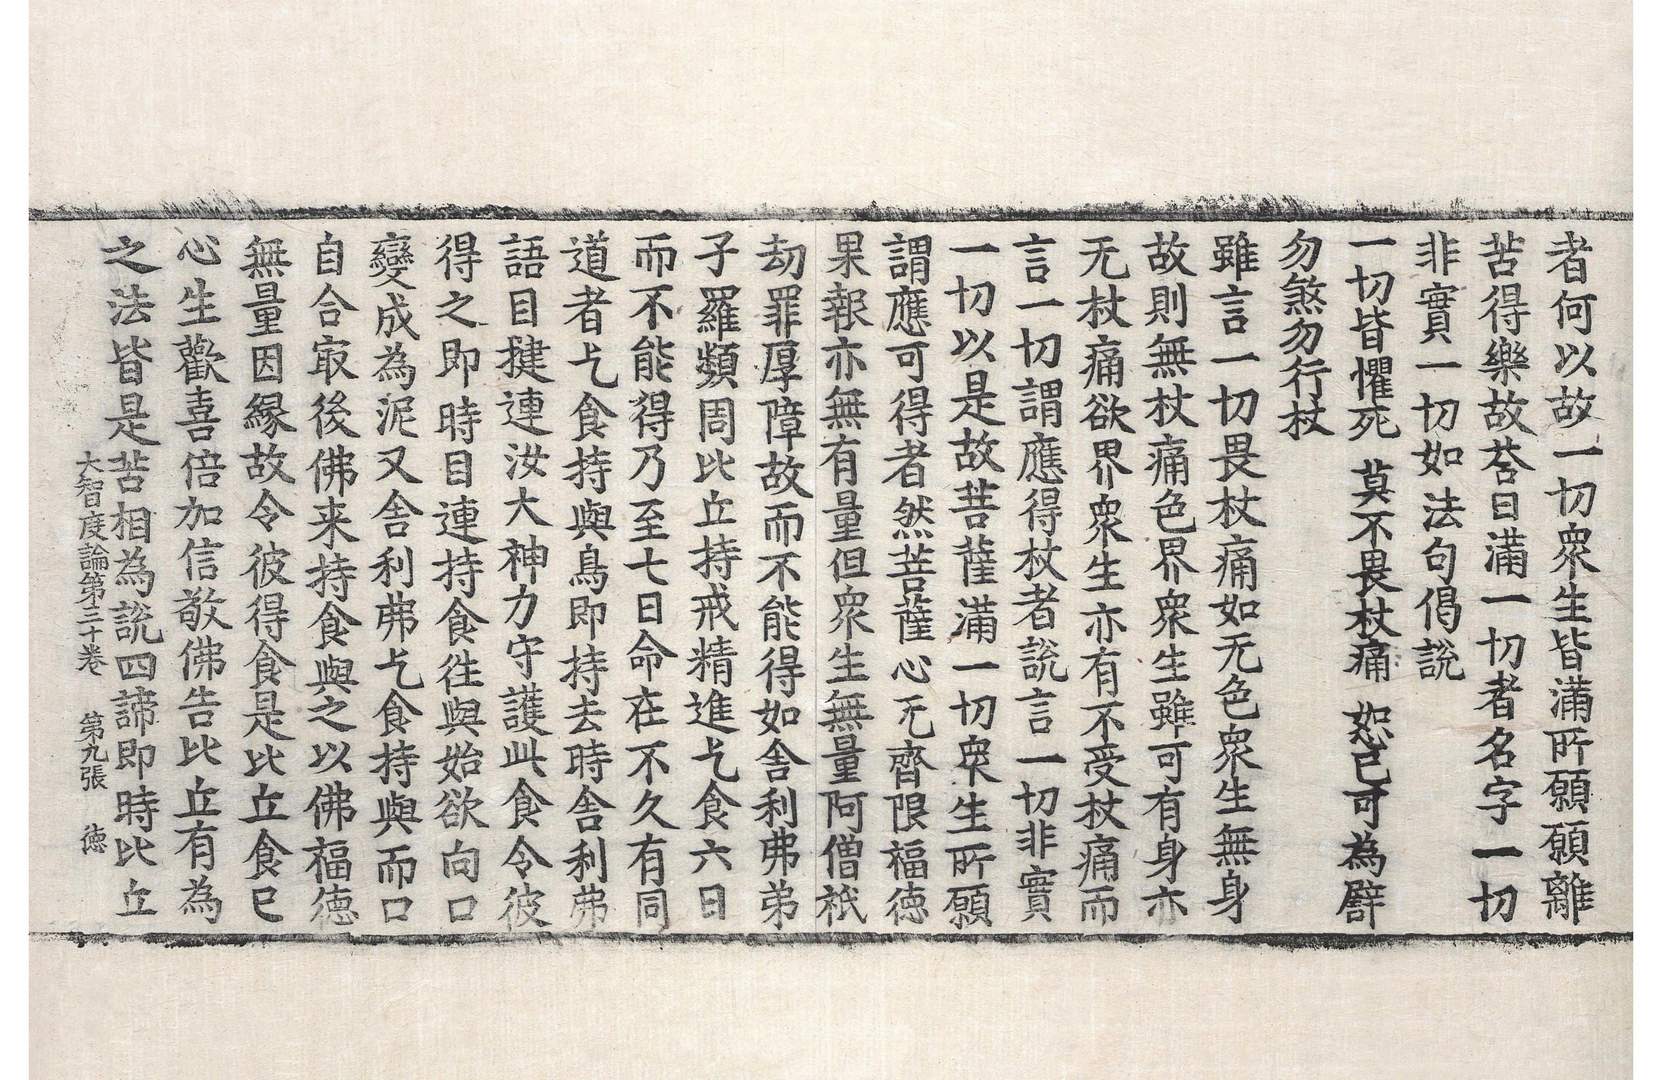 者何以故一切衆生皆滿所願願離
苦得樂故荅曰滿一切者名字一切
非實一切如法句偈說
一切皆懼死 莫不畏杖痛 恕己可為譬
勿煞勿行杖
雖言一切畏杖痛如无色衆生無身
故則無杖痛色界衆生雖可有身亦
无杖痛欲界衆生亦有不受杖痛而
言一切謂應得杖者說言一切非實
一切以是故菩薩滿一切衆生所願
謂應可得者然菩薩心无齊限福德
果報亦無有量但衆生無量阿僧祇
劫罪厚障故而不能得如舍利弗弟
子羅頻周比丘持戒精進乞食六日
而不能得乃至七日命在不久有同
道者乞食持與鳥即持去時舍利弗
語目揵連汝大神力守護此食令彼
得之即時目連持食徃與始欲向口
變成為泥又舍利弗乞食持與而口
自合㝡後佛来持食與之以佛福德
無量因緣故令彼得食是比丘食已
心生歡喜倍加信敬佛告比丘有為
之法皆是苦相為說四諦即時比丘
大智度論第三十卷 第九張 德